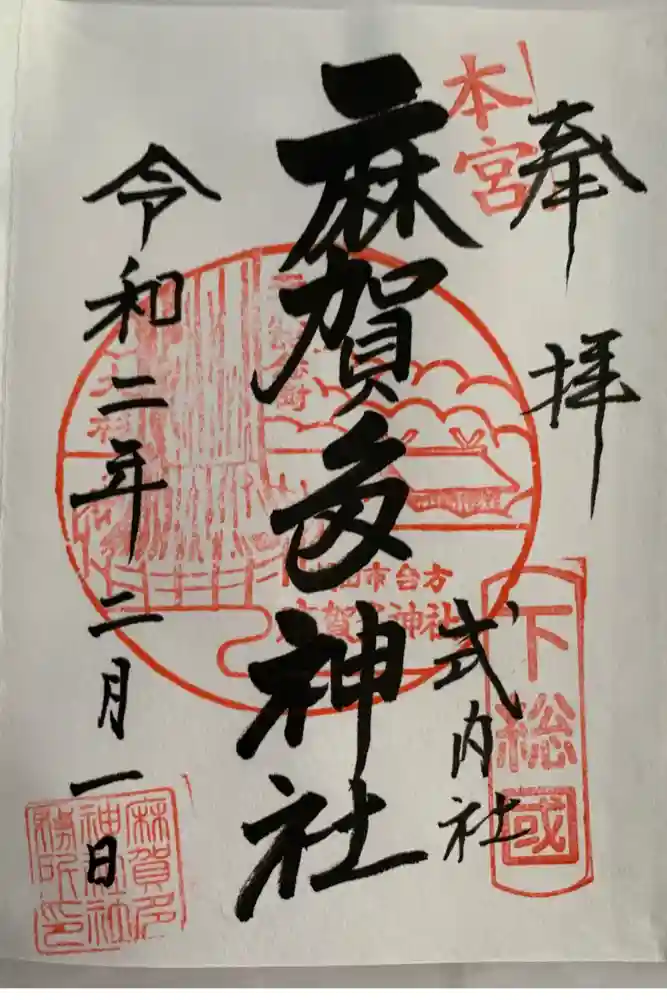 奉拝
本宮
下総國
式内社
麻賀多神社
市台方
麻賀多神社
令和二年二月一日
麻賀多
神社社
務所印